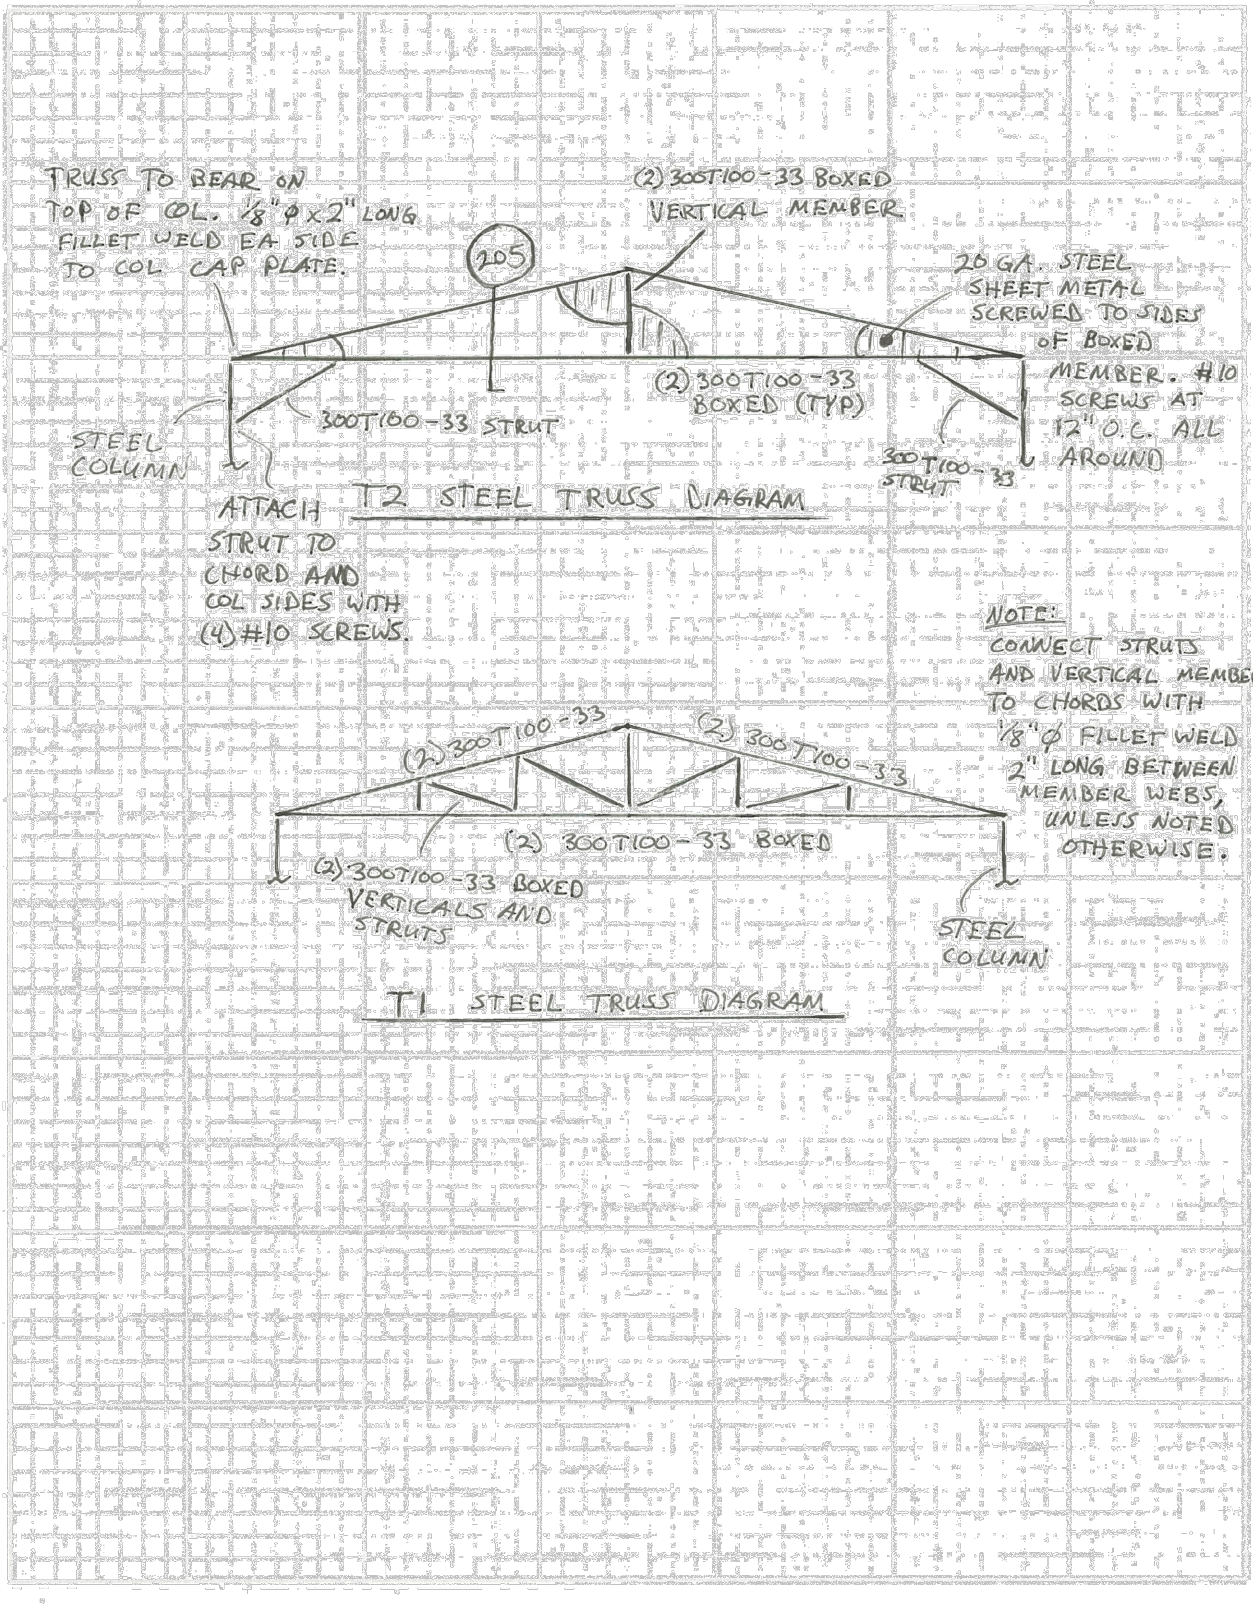 TRUSS TO BEAR ON
TOP OF COL. 1/8" φ x 2" LONG
FILLET WELD EA SIDE
TO COL CAP PLATE.
(2) 300T100-33 BOXED
VERTICAL MEMBER
205
20 GA. STEEL
SHEET METAL
SCREWED TO SIDES
OF BOXED
MEMBER. #10
SCREWS AT
12" O.C. ALL
AROUND
(2) 300T100-33
BOXED (TYP)
300T100-33 STRUT
STEEL
COLUMN
300T100-33
STRUT
ATTACH
STRUT TO
CHORD AND
COL SIDES WITH
(4) #10 SCREWS.
T2 STEEL TRUSS DIAGRAM
NOTE:
CONNECT STRUTS
AND VERTICAL MEMBE
TO CHORDS WITH
1/8" φ FILLET WELD
2" LONG BETWEEN
MEMBER WEBS,
UNLESS NOTED
OTHERWISE.
(2) 300T100-33
(2) 300T100-33
(2) 300T100-33 BOXED
(2) 300T100-33 BOXED
VERTICALS AND
STRUTS
STEEL
COLUMN
T1 STEEL TRUSS DIAGRAM